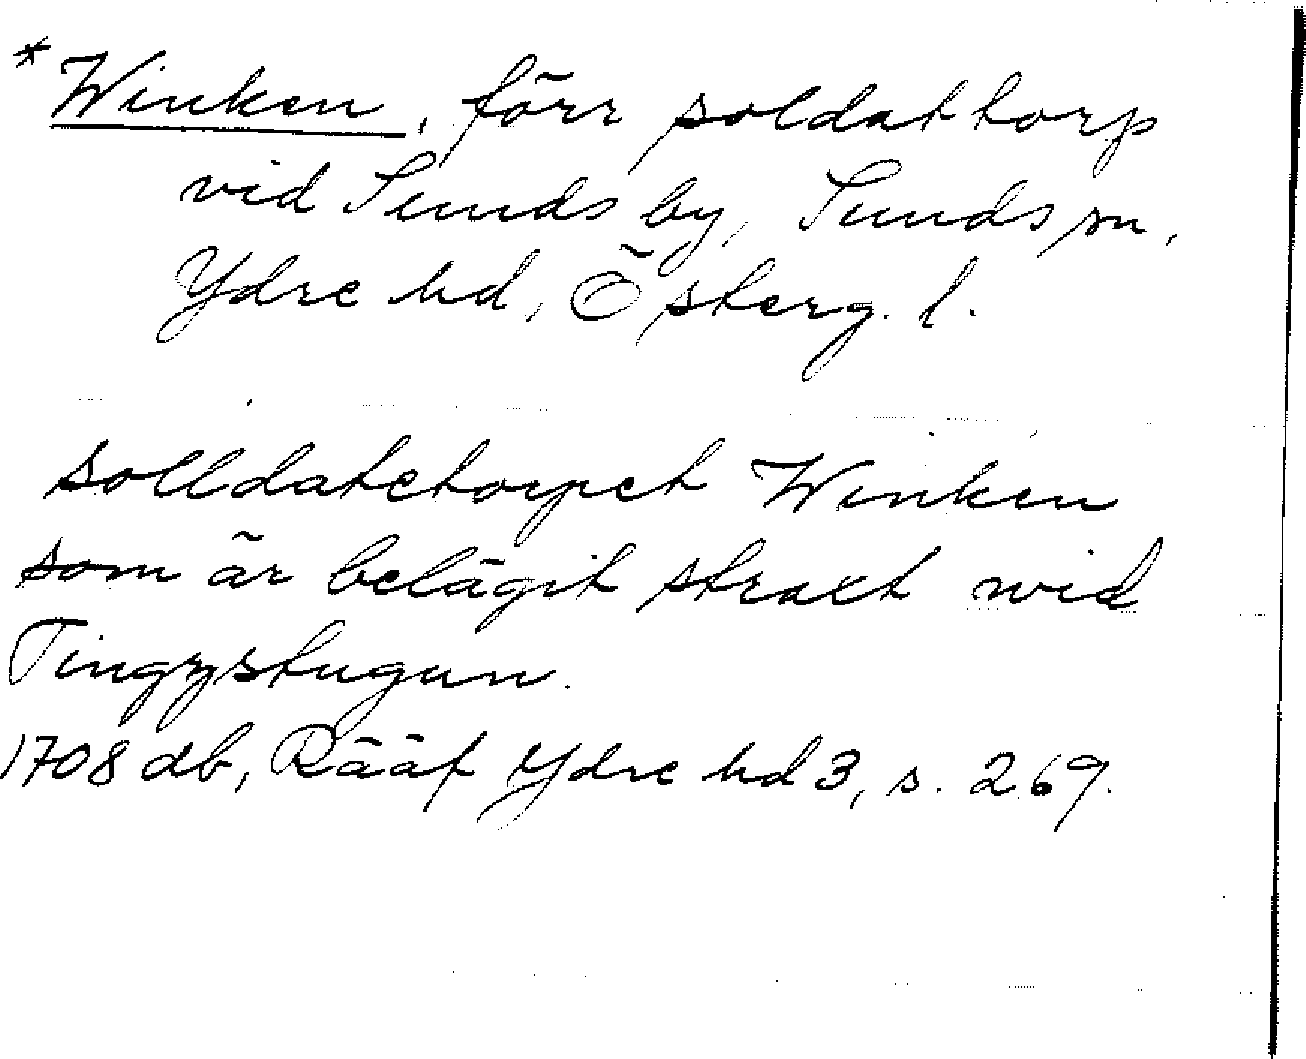 * Winken, förr soldattorp
vid Sunds by, Sunds sn,
Ydre hd, Österg. l.
solldatetorpet Winken
som är belägit straxt wid
Tingzstugun.
1708 db, Rääf Ydre hd 3, s. 269.